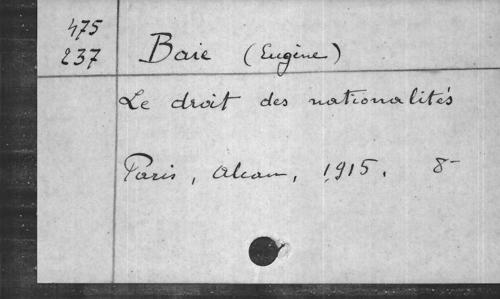 475
237
Baie (Eugène)
Le droit des nationalités
Paris, Alcan, 1915. 8-